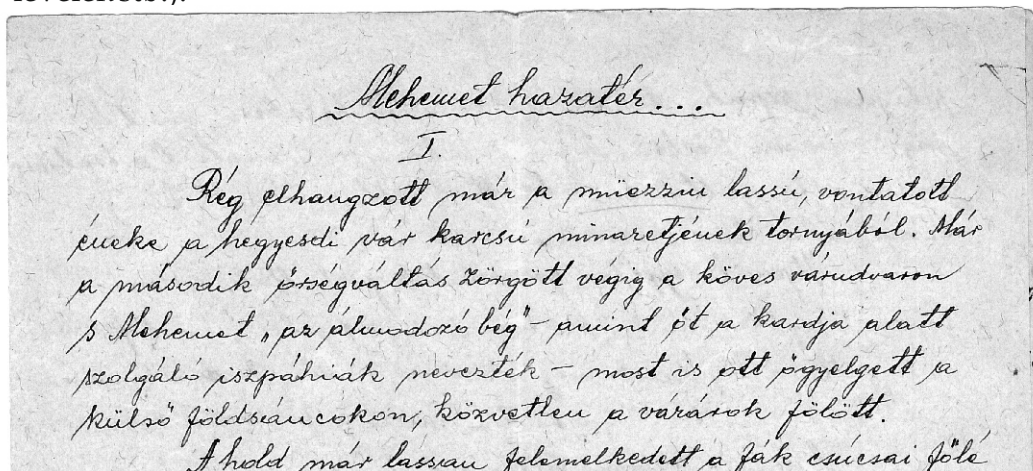 Mehemet hazatér...
I.
Rég elhangzott már a müezzin lassú, vontatott
éneke a hegyesdi vár karcsú minaretjének tornyából. Már
a második őrségváltás zörgött végig a köves várudvaron
s Mehemet „az álmodozó bég" - amint őt a kardja alatt
szolgáló iszpáhiák nevezték - most is ott ögyelgett a
külső földsáncokon, közvetlen a várárok fölött.
A hold már lassan felemelkedett a fák csúcsai fölé